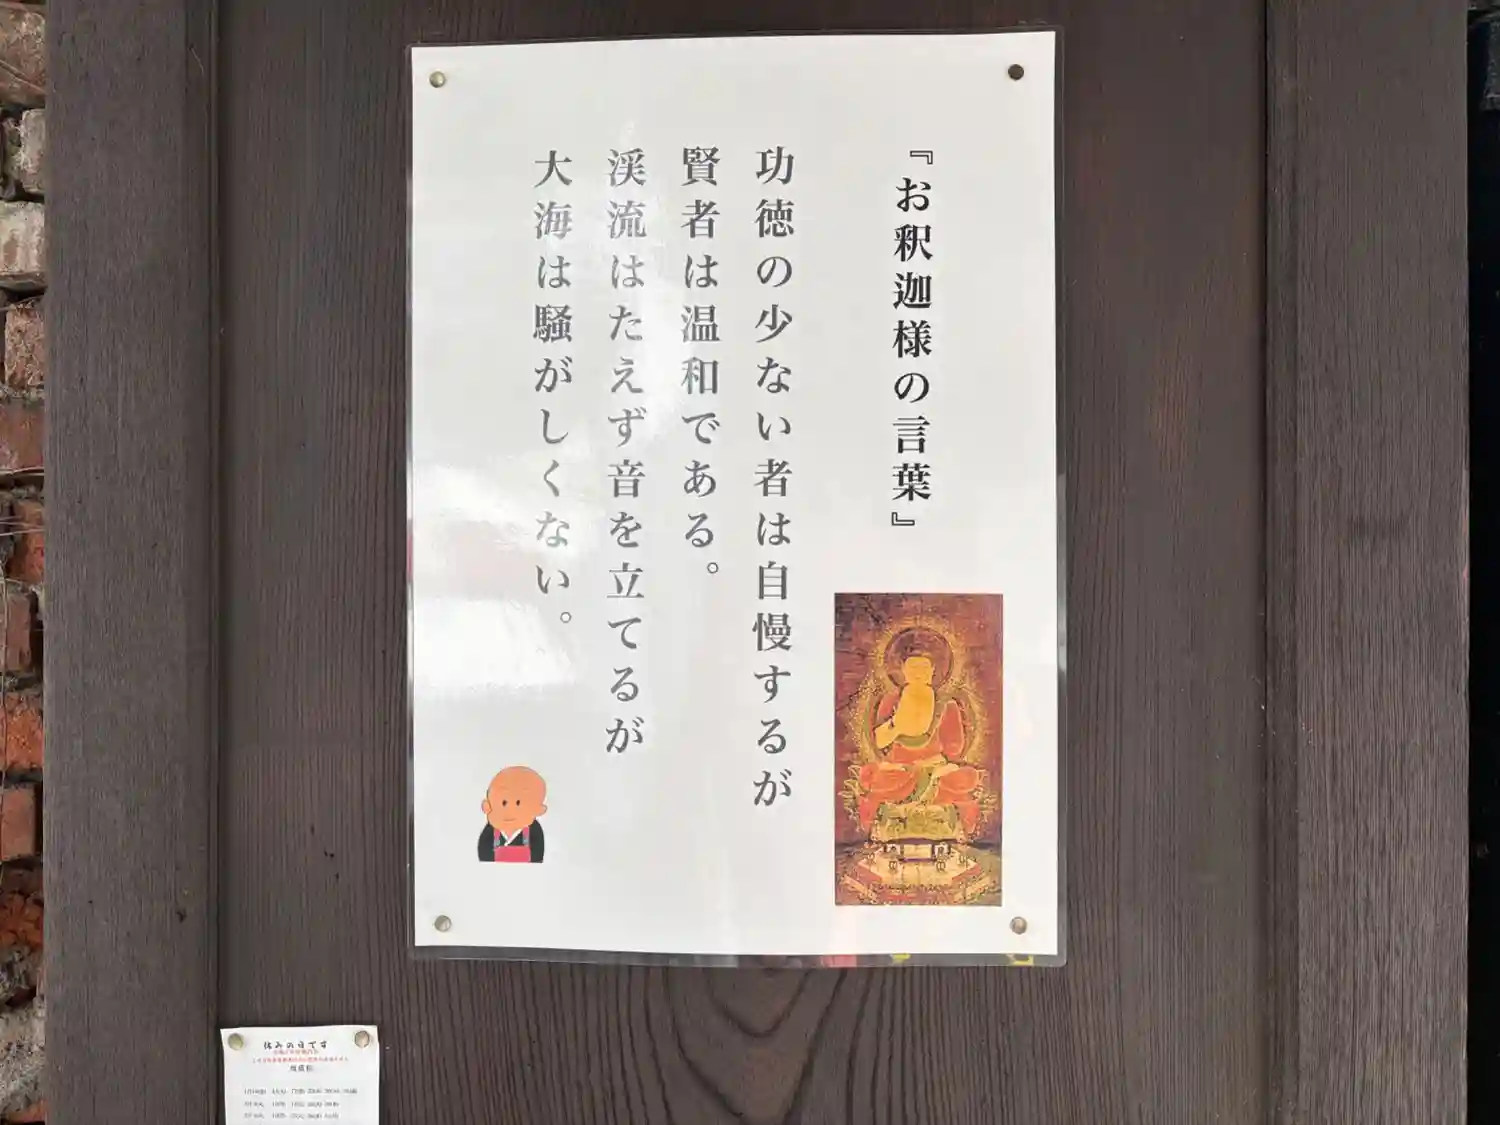 『お釈迦様の言葉』
功徳の少ない者は自慢するが
賢者は温和である。
渓流はたえず音を立てるが
大海は騒がしくない。
休みの日です